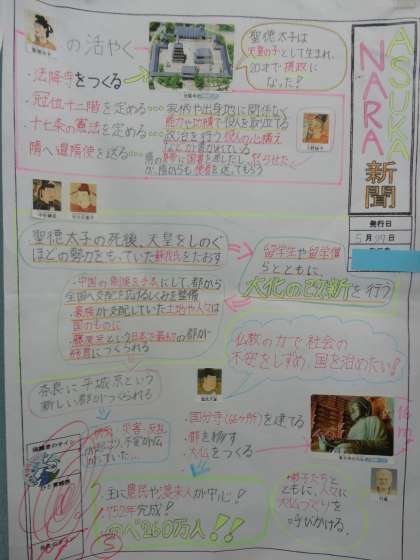 ASUKA
NARA
新聞
発行日
5月
の活やく
・法隆寺をつくる
聖徳太子は
天皇の子として生まれ、
20才で摂政に
なった!
・冠位十二階を定める…家柄や出身地に関係なく
能力や功績で役人を取り立てる
・十七条の憲法を定める…政治を行う役人の心構え
・隋へ遣隋使を送る
聖徳太子の死後、天皇をしのぐ
ほどの勢力をもっていた蘇我氏をたおす
留学生や留学僧
らとともに、
大化の改新を行う
・中国の制度を手本にして、都から
全国へ支配を広げるしくみを整備
・豪族が支配していた土地や人々は
国のものに
・藤原京という日本で最初の都が
飛鳥につくられる
仏教の力で社会の
不安をしずめ、国を治めたい!
奈良に平城京という
新しい都がつくられる
・国分寺(ヶ所)を建てる
・都を移す
・大仏をつくる
主に農民や渡来人が中心!
752年完成!
のべ260万人!!
弟子たちと
ともに、人々に
大仏づくりを
呼びかける。
行基